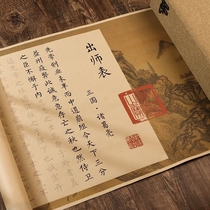 出师表
三国·诸葛亮
先帝创业未半而中道崩殂今天下三分
益州疲弊此诚危急存亡之秋也然侍卫
之臣不懈于内